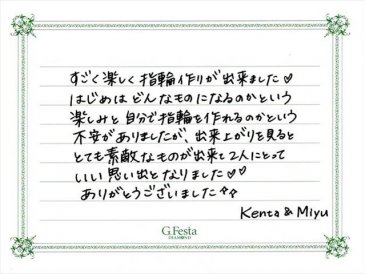 すごく楽しく指輪作りが出来ました♡
はじめは どんなものになるのかという
楽しみと自分で指輪を作れるのかという
不安がありましたが、出来上がりを見ると
とても素敵なものが出来て2人にとって
いい思い出となりました♡♡
ありがとうございました☆☆
Kenta & Miyu
G.Festa
DIAMOND